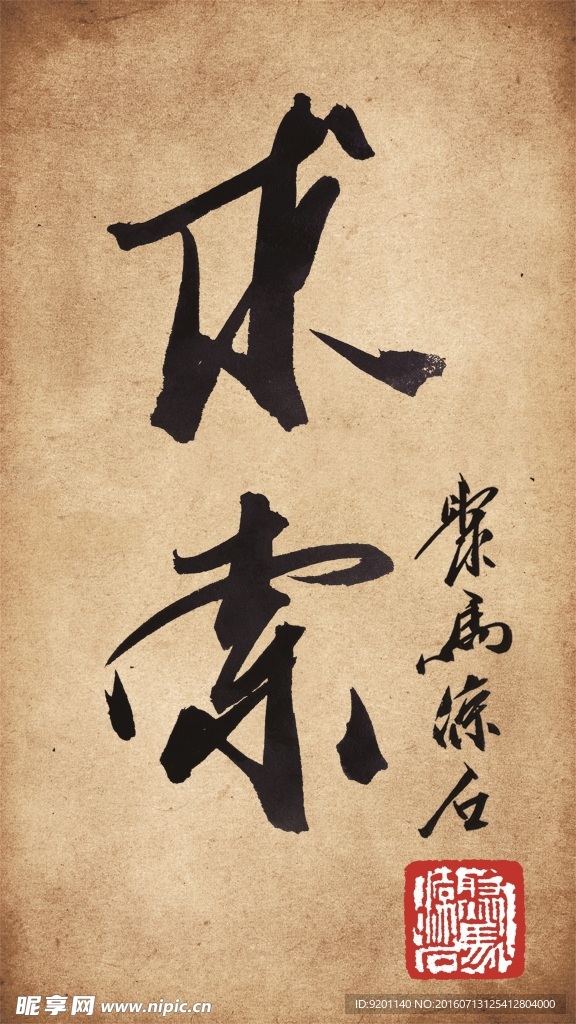 求索
聚馬涼石
昵享网 www.nipic.cn
ID:9201140 NO:20160713125412804000